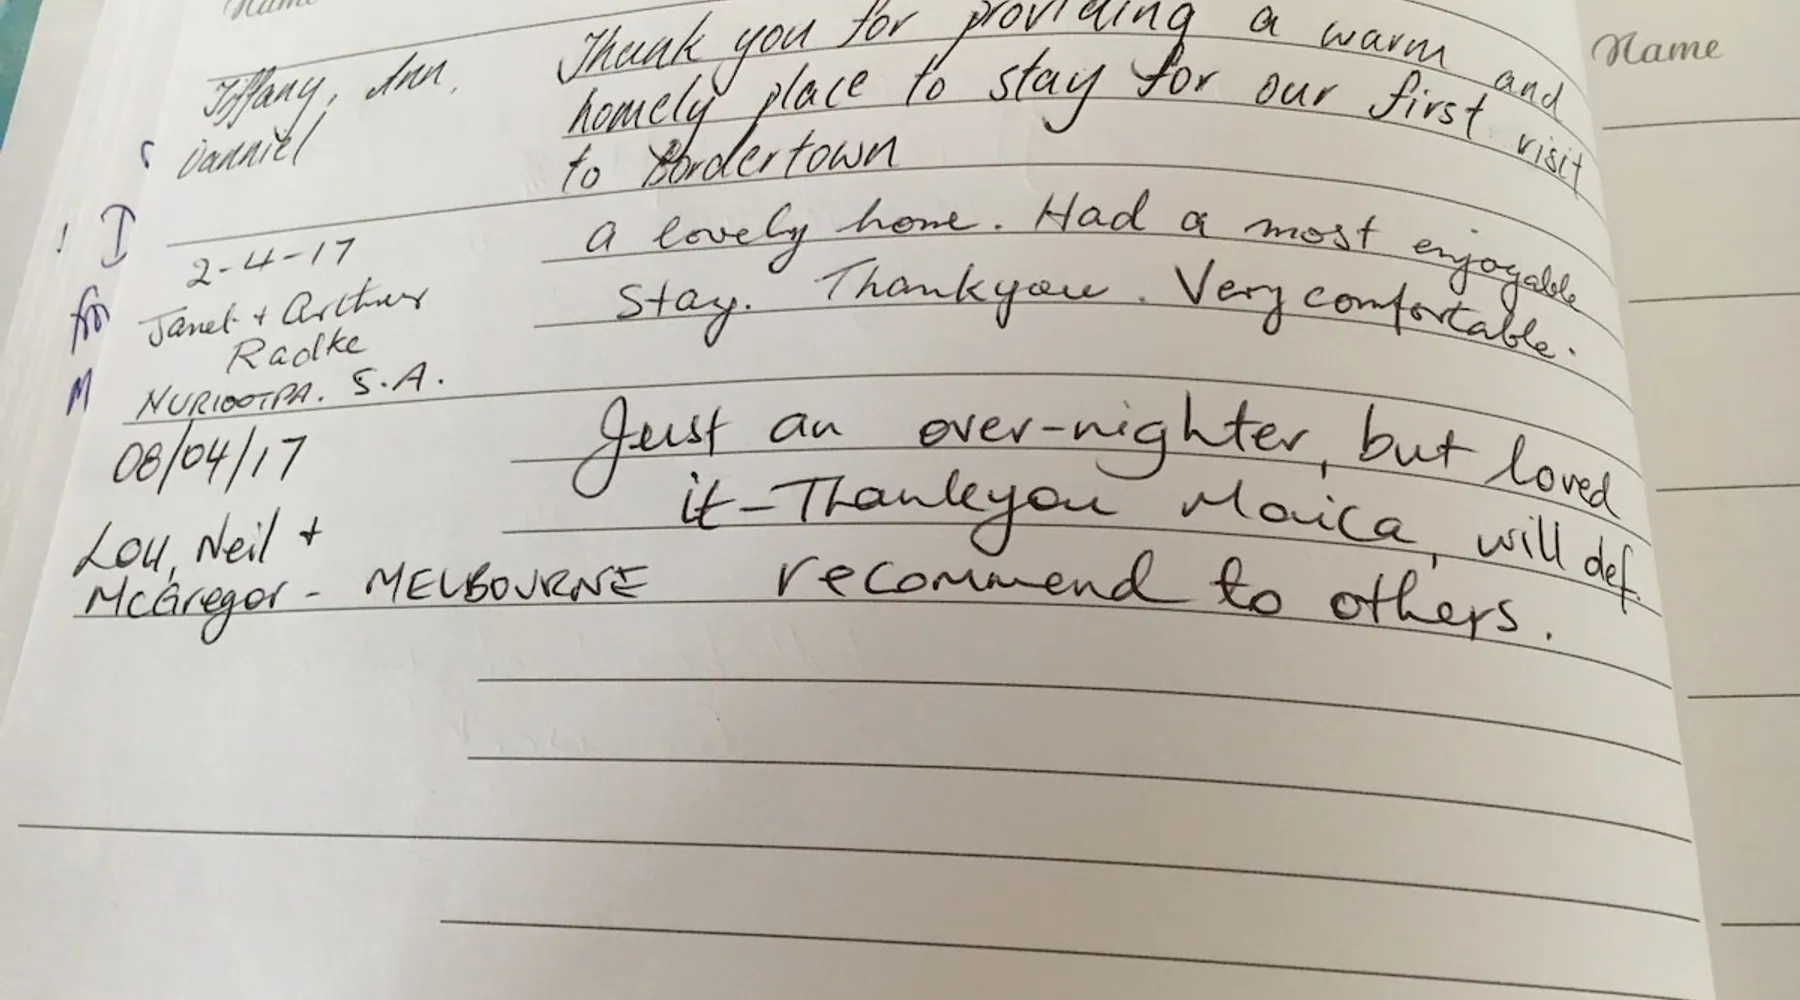 Name
Name
Tiffany, Ann,
Danniel
Thank you for providing a warm and
homely place to stay for our first visit
to Bordertown
2-4-17
Janet + Arthur
Radke
NURIOOTPA. S.A.
A lovely home. Had a most enjoyable
Stay. Thankyou. Very comfortable.
08/04/17
Lou, Neil +
McGregor - MELBOURNE
Just an over-nighter, but loved
it - Thankyou Monica, will def.
recommend to others.